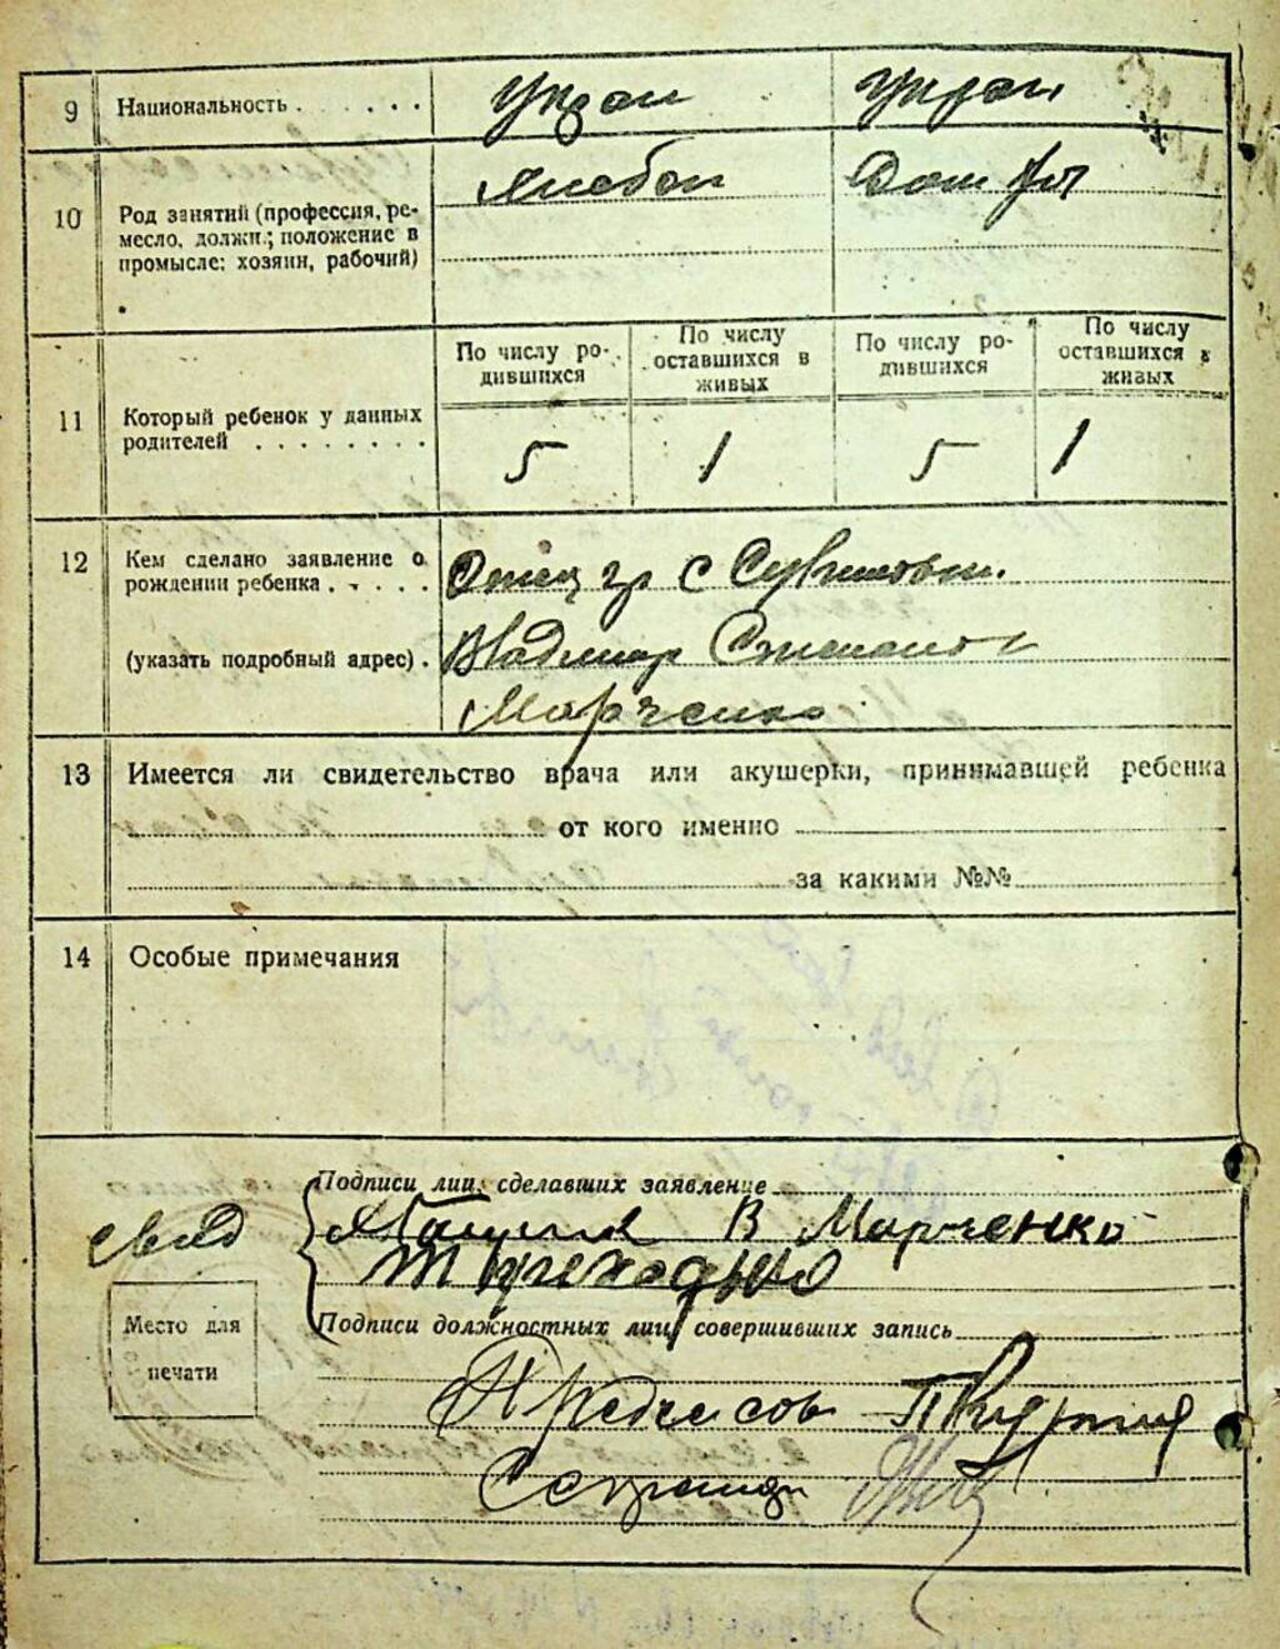 9 Национальность . . . . . . Украин Украин
10 Род занятий (профессия, ре-
месло, должн.; положение в
промысле: хозяин, рабочий)
Хлебоп Дом
11 Который ребенок у данных
родителей . . . . . . . .
По числу ро-
дившихся
По числу
оставшихся в
живых
По числу ро-
дившихся
По числу
оставшихся в
живых
5 1 5 1
12 Кем сделано заявление о
рождении ребенка . . . . .
(указать подробный адрес) .
Отец гр с
Владимир Степанов
Марченко
13 Имеется ли свидетельство врача или акушерки, принимавшей ребенка
от кого именно
за какими №№
14 Особые примечания
Подписи лиц, сделавших заявление
В Марченко
Место для
печати
Подписи должностных лиц, совершивших запись